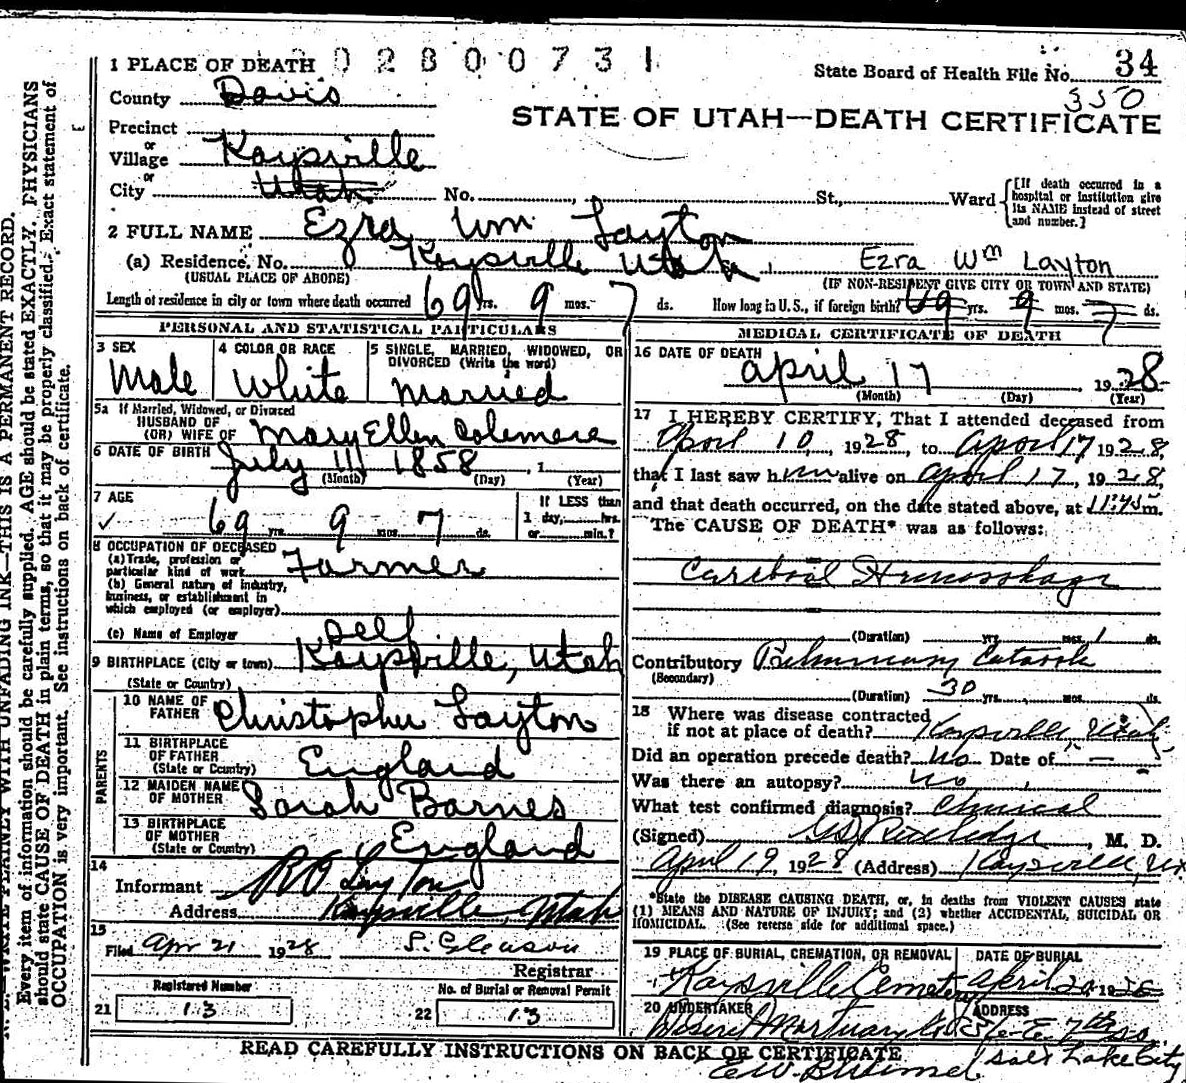 1 PLACE OF DEATH 0 2 8 0 0 7 3 1
State Board of Health File No. 34
350
County Davis
STATE OF UTAH—DEATH CERTIFICATE
Precinct
or
Village Kaysville
or
City Utah No. St., Ward [If death occurred in a hospital or institution give its NAME instead of street and number.]
2 FULL NAME Ezra Wm Layton
(a) Residence. No. Kaysville Utah
Ezra Wm Layton
(USUAL PLACE OF ABODE)
(IF NON-RESIDENT GIVE CITY OR TOWN AND STATE)
Length of residence in city or town where death occurred 69 yrs. 9 mos. 7 ds. How long in U.S., if foreign birth? 69 yrs. 9 mos. 7 ds.
PERSONAL AND STATISTICAL PARTICULARS
3 SEX
Male
4 COLOR OR RACE
White
5 SINGLE, MARRIED, WIDOWED, OR
DIVORCED (Write the word)
Married
5a If Married, Widowed, or Divorced
HUSBAND OF
(OR) WIFE OF Mary Ellen Colemere
6 DATE OF BIRTH July 11 1858, 1
(Month) (Day) (Year)
7 AGE
69 yrs. 9 mos. 7 ds.
If LESS than
1 day, hrs.
or min.?
8 OCCUPATION OF DECEASED
(a) Trade, profession or
particular kind of work Farmer
(b) General nature of industry,
business, or establishment in
which employed (or employer)
(c) Name of Employer Self
9 BIRTHPLACE (City or town) Kaysville, Utah
(State or Country)
PARENTS
10 NAME OF
FATHER Christopher Layton
11 BIRTHPLACE
OF FATHER England
(State or Country)
12 MAIDEN NAME
OF MOTHER Sarah Barnes
13 BIRTHPLACE
OF MOTHER England
(State or Country)
14
Informant R O Layton
Address Kaysville, Utah
15
Filed Apr 21 1928 S. Gleason
Registrar
Registered Number
21 13
No. of Burial or Removal Permit
22 13
MEDICAL CERTIFICATE OF DEATH
16 DATE OF DEATH
April 17, 1928
(Month) (Day) (Year)
17 I HEREBY CERTIFY, That I attended deceased from
April 10, 1928, to April 17 1928,
that I last saw him alive on April 17, 1928,
and that death occurred, on the date stated above, at 11:45 m.
The CAUSE OF DEATH* was as follows:
Cerebral Hemorrhage
(Duration) yrs. mos. 1 ds.
Contributory Pulmonary Catarrh
(Secondary)
(Duration) 30 yrs. mos. ds.
18 Where was disease contracted
if not at place of death? Kaysville, Utah
Did an operation precede death? No Date of —
Was there an autopsy? No
What test confirmed diagnosis? Clinical
(Signed) Rutledge, M. D.
April 19, 1928 (Address) Kaysville, Ut
*State the DISEASE CAUSING DEATH, or, in deaths from VIOLENT CAUSES state
(1) MEANS AND NATURE OF INJURY; and (2) whether ACCIDENTAL, SUICIDAL OR
HOMICIDAL. (See reverse side for additional space.)
19 PLACE OF BURIAL, CREMATION, OR REMOVAL
Kaysville Cemetery
DATE OF BURIAL
April 20, 1928
20 UNDERTAKER
Deseret Mortuary Co
ADDRESS
36 E. 7th So.
Salt Lake City
READ CAREFULLY INSTRUCTIONS ON BACK OF CERTIFICATE
E.W.
N. B.—WRITE PLAINLY WITH UNFADING INK—THIS IS A PERMANENT RECORD.
Every item of information should be carefully supplied. AGE should be stated EXACTLY. PHYSICIANS
should state CAUSE OF DEATH in plain terms, so that it may be properly classified. Exact statement of
OCCUPATION is very important. See instructions on back of certificate.